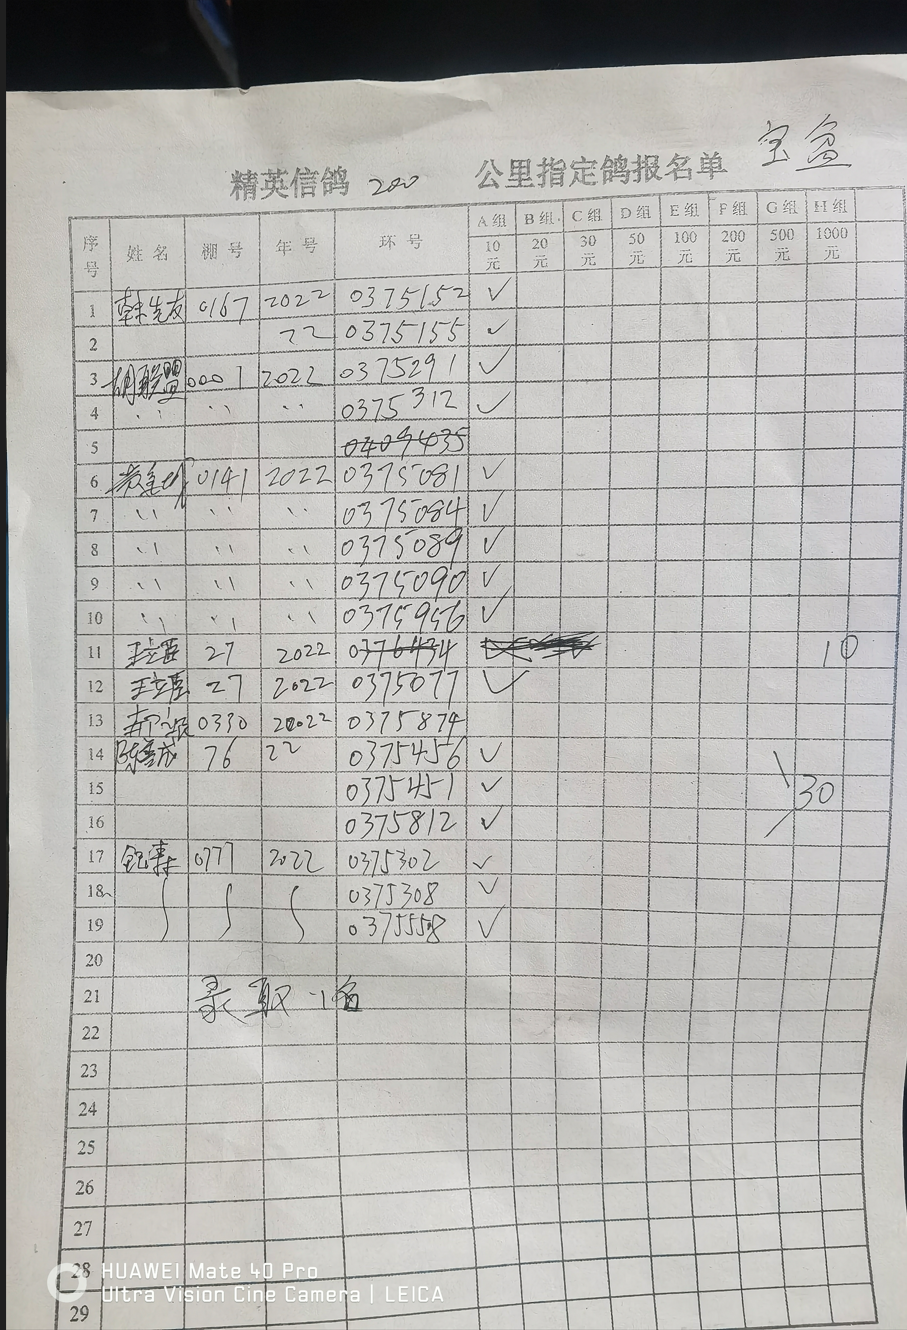 宝盆
精英信鸽 200 公里指定鸽报名单
序号 姓名 棚号 年号 环号 A组 B组 C组 D组 E组 F组 G组 H组
10元 20元 30元 50元 100元 200元 500元 1000元
1 韩先友 0167 2022 0375152 ✓
2 22 0375155 ✓
3 胡联盟 0001 2022 0375291 ✓
4 〃 〃 〃 0375312 ✓
5 0409435
6 0141 2022 0375081 ✓
7 〃 〃 〃 0375084 ✓
8 〃 〃 〃 0375089 ✓
9 〃 〃 〃 0375090 ✓
10 〃 〃 〃 0375956 ✓
11 27 2022 0376434 10
12 27 2022 0375077 ✓
13 0330 2022 0375874
14 76 22 0375456 ✓
15 0375451 ✓ 30
16 0375812 ✓
17 0777 2022 0375302 ✓
18 0375308 ✓
19 0375558 ✓
20
21 录取 1名
22
23
24
25
26
27
28
29
HUAWEI Mate 40 Pro
Ultra Vision Cine Camera | LEICA